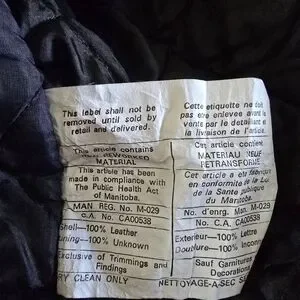 This label shall not be
removed until sold by
retail and delivered.
This article contains
MATERIAL
This article has been
made in compliance with
The Public Health Act
of Manitoba.
MAN REG. No. M-029
C.A. No. CA00538
Shell—100% Leather
Lining—100% Unknown
Exclusive of Trimmings and
Findings
DRY CLEAN ONLY
Cette etiquette ne doit
pas etre enlevee avant la
vente par un detaillant et
la livraison de l'article.
Cet article contient
MATERIAU NEUF
RETRANSFORME
Cet article a ete fabrique
en conformite de la Loi
de la Sante publique
du Manitoba.
No. d'enrg. Man. M-029
No. C.A. CA00538
Exterieur—100%
Doublure—100% Inconn
Sauf Garnitures
Decorations
NETTOYAGE-A-SEC